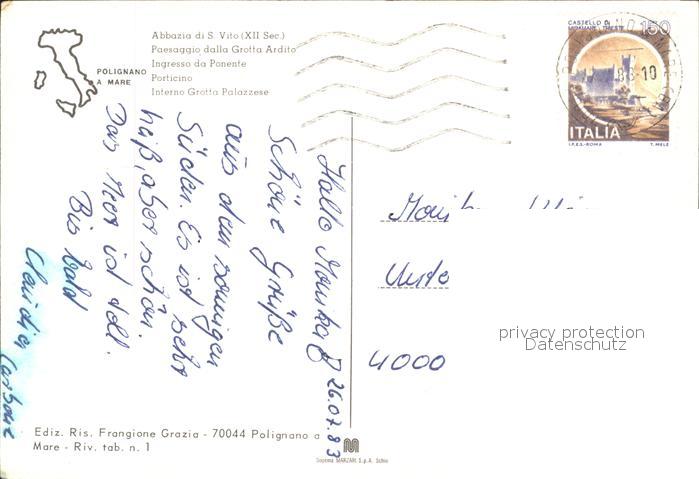 POLIGNANO
A MARE
Abbazia di S. Vito (XII Sec.)
Paesaggio dalla Grotta Ardito
Ingresso da Ponente
Porticino
Interno Grotta Palazzese
CASTELLO DI
MIRAMARE - TRIESTE
150
ITALIA
I.P.Z.S.-ROMA T. MELE
8-10
26.07.83
Hallo Monika
Schöne Grüße
aus dem sonnigen
Süden. Es ist sehr
heiß, aber schön.
Das Meer ist toll.
Bis bald
Claudia
4000
privacy protection
Datenschutz
Ediz. Ris. Frangione Grazia - 70044 Polignano a
Mare - Riv. tab. n. 1
M
Soprema MANZARI S.p.A. Schio